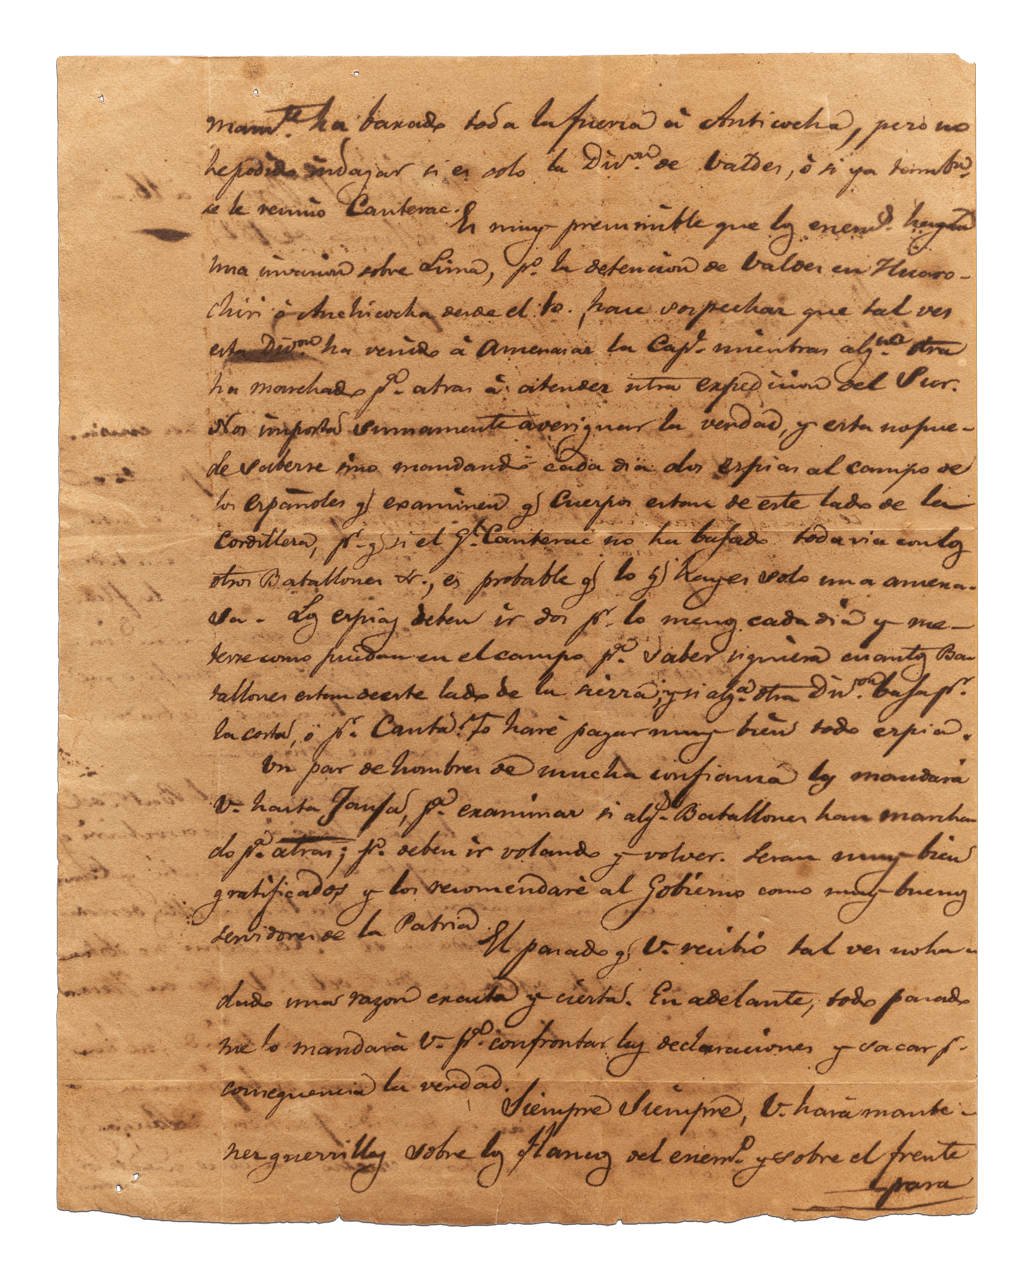 mamte. ha baxado toda la fuersa à Anticocha, pero no
he podido indagar si es solo la Divon. de Valdes, ò si ya tambn.
se le reunió Canterac.
Es muy presumible que los enemos. hagan
una invasion sobre Lima, pr. la detencion de Valdes en Huaro-
chiri ò Anchicocha desde el 10. hace sospechar que tal ves
esta Divon. ha venido à amenasar la Capl. mientras algna. otra
ha marchado pa. atras à atender ntra expedicion del Sur.
Nos importa sumamente averiguar la verdad, y esta no pue-
de saberse sino mandando cada dia dos espias al campo de
los españoles q examinen q Cuerpos estan de este lado de la
Cordillera, pr. q si el Gl. Canterac no ha bajado todavia con los
otros Batallones &., es probable q lo q hay es solo una amena-
sa. Los espias deben ir dos pr. lo menos cada dia y me-
terse como puedan en el campo pa. saber siquiera cuantos Ba-
tallones estan de este lado de la sierra; y si alga. otra Divon. baja pr.
la costa, ò pr. Canta. Yo haré pagar muy bien todo espia.
Un par de hombres de mucha confianza los mandará
V. hasta Jauja, pa. examinar si algs. Batallones han marcha-
do pa. atras; pr. deben ir volando y volver. Seran muy bien
gratificados y los recomendaré al Gobierno como muy buenos
servidores de la Patria.
El pasado q V. recibió tal ves no ha
dado una razon exacta y cierta. En adelante, todo pasado
me lo mandará V. pa. confrontar las declaraciones y sacar pr.
consequencia la verdad.
Siempre Siempre, V. hará mante-
ner guerrillas sobre los flancos del enemo. y sobre el frente
para